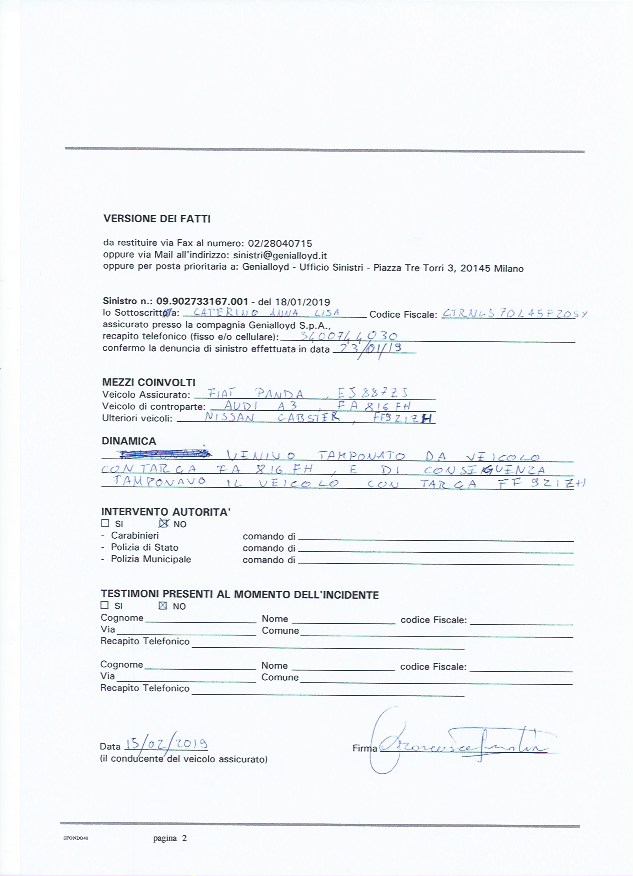 VERSIONE DEI FATTI
da restituire via Fax al numero: 02/28040715
oppure via Mail all'indirizzo: sinistri@genialloyd.it
oppure per posta prioritaria a: Genialloyd - Ufficio Sinistri - Piazza Tre Torri 3, 20145 Milano
Sinistro n.: 09.902733167.001 - del 18/01/2019
Io Sottoscritt/a: CATERINO ANNA LISA Codice Fiscale:
assicurato presso la compagnia Genialloyd S.p.A.,
recapito telefonico (fisso e/o cellulare):
confermo la denuncia di sinistro effettuata in data 23/01/19
MEZZI COINVOLTI
Veicolo Assicurato: FIAT PANDA,
Veicolo di controparte: AUDI A3, FA 816 FH
Ulteriori veicoli: NISSAN CABSTER, FF921ZH
DINAMICA
VENIVO TAMPONATO DA VEICOLO
CON TARGA FA 816 FH, E DI CONSIGUENZA
TAMPONAVO IL VEICOLO CON TARGA FF 921ZH
INTERVENTO AUTORITA'
SI NO
- Carabinieri comando di
- Polizia di Stato comando di
- Polizia Municipale comando di
TESTIMONI PRESENTI AL MOMENTO DELL'INCIDENTE
SI NO
Cognome Nome codice Fiscale:
Via Comune
Recapito Telefonico
Cognome Nome codice Fiscale:
Via Comune
Recapito Telefonico
Data 15/02/2019 Firma
(il conducente del veicolo assicurato)
pagina 2